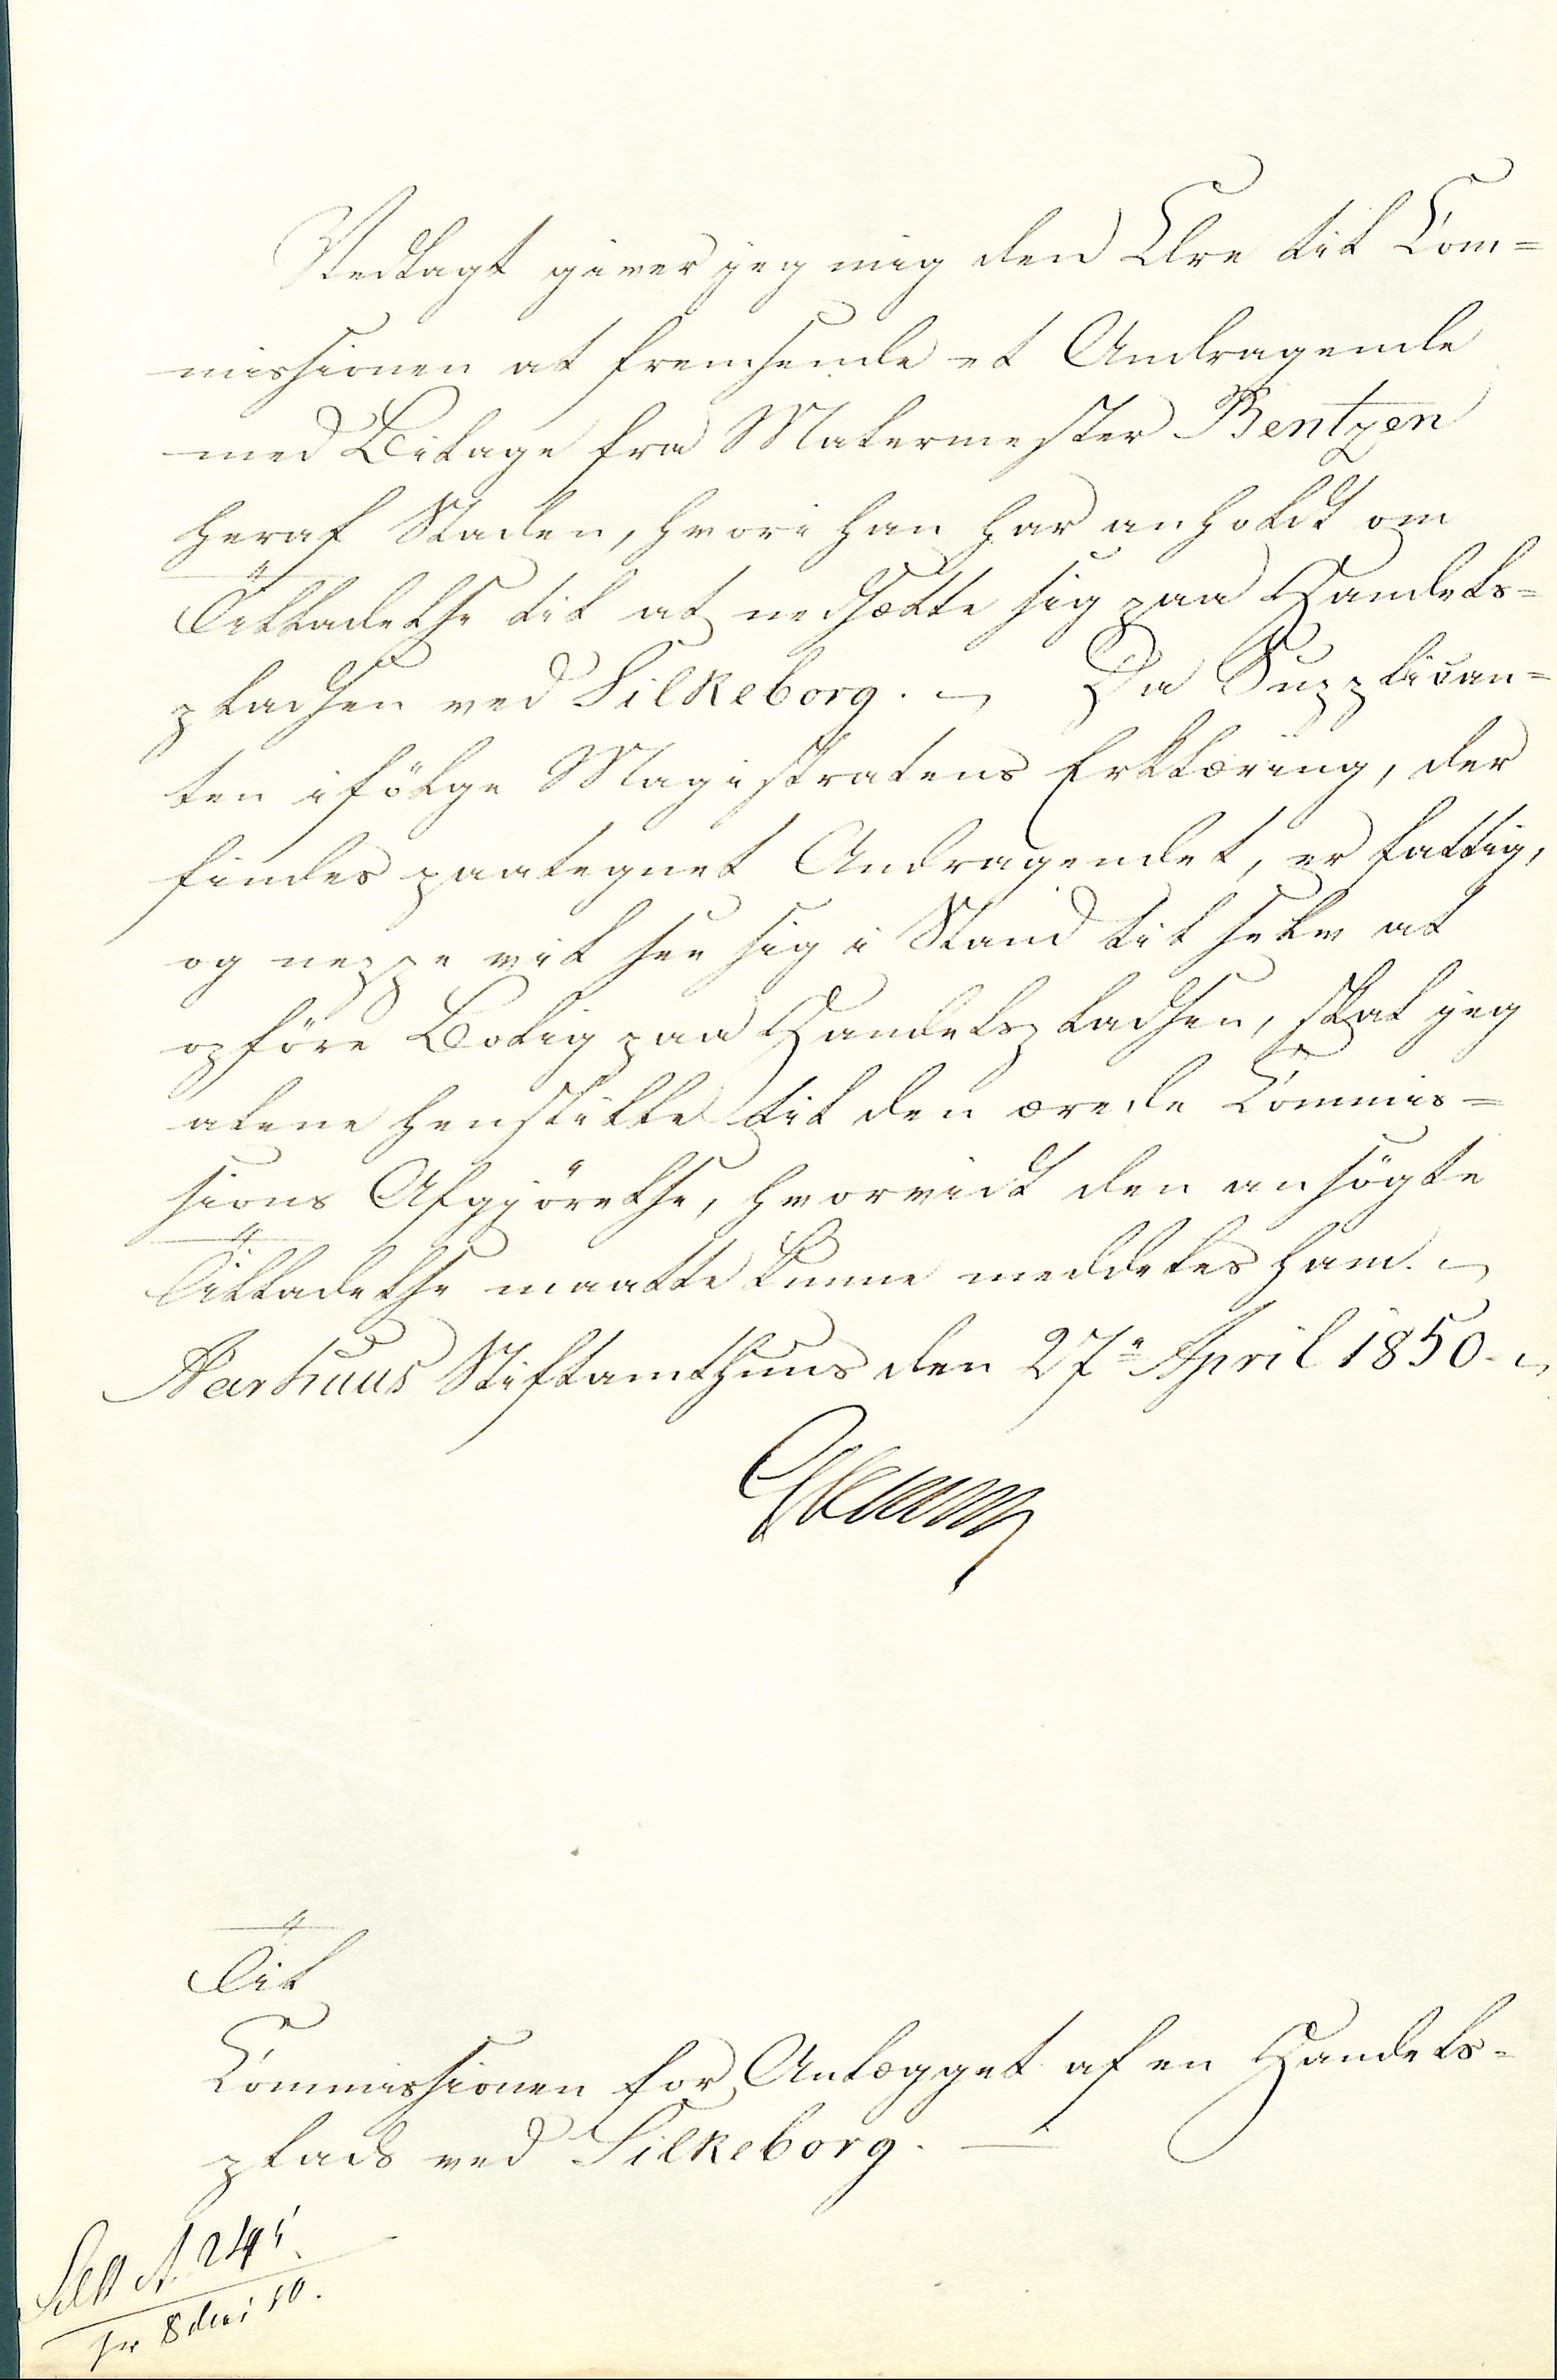 Vedlagt giver jeg mig den Ære til Com=
missionen at fremsende et Andragende
med Bilage fra Malermester Bentzen
heraf Staden, hvori han har anholdt om
Tilladelse til at nedsætte sig paa Handels=
pladsen ved Silkeborg. – Da Supplican=
ten ifölge Magistratens Erklæring, der
findes paategnet Andragendet, er fattig,
og neppe vil see sig i Stand til selv at
opföre Bolig paa Handelspladsen, skal jeg
alene henstille til den ærede Commis=
sions Afgjörelse, hvorvidt den ansögte
Tilladelse maatte kunne meddeles ham. –
Aarhuus Stiftamthuus den 27de April 1850. –
Til
Commissionen for Anlægget af en Handels=
plads ved Silkeborg. –
245
8 Mai 50.